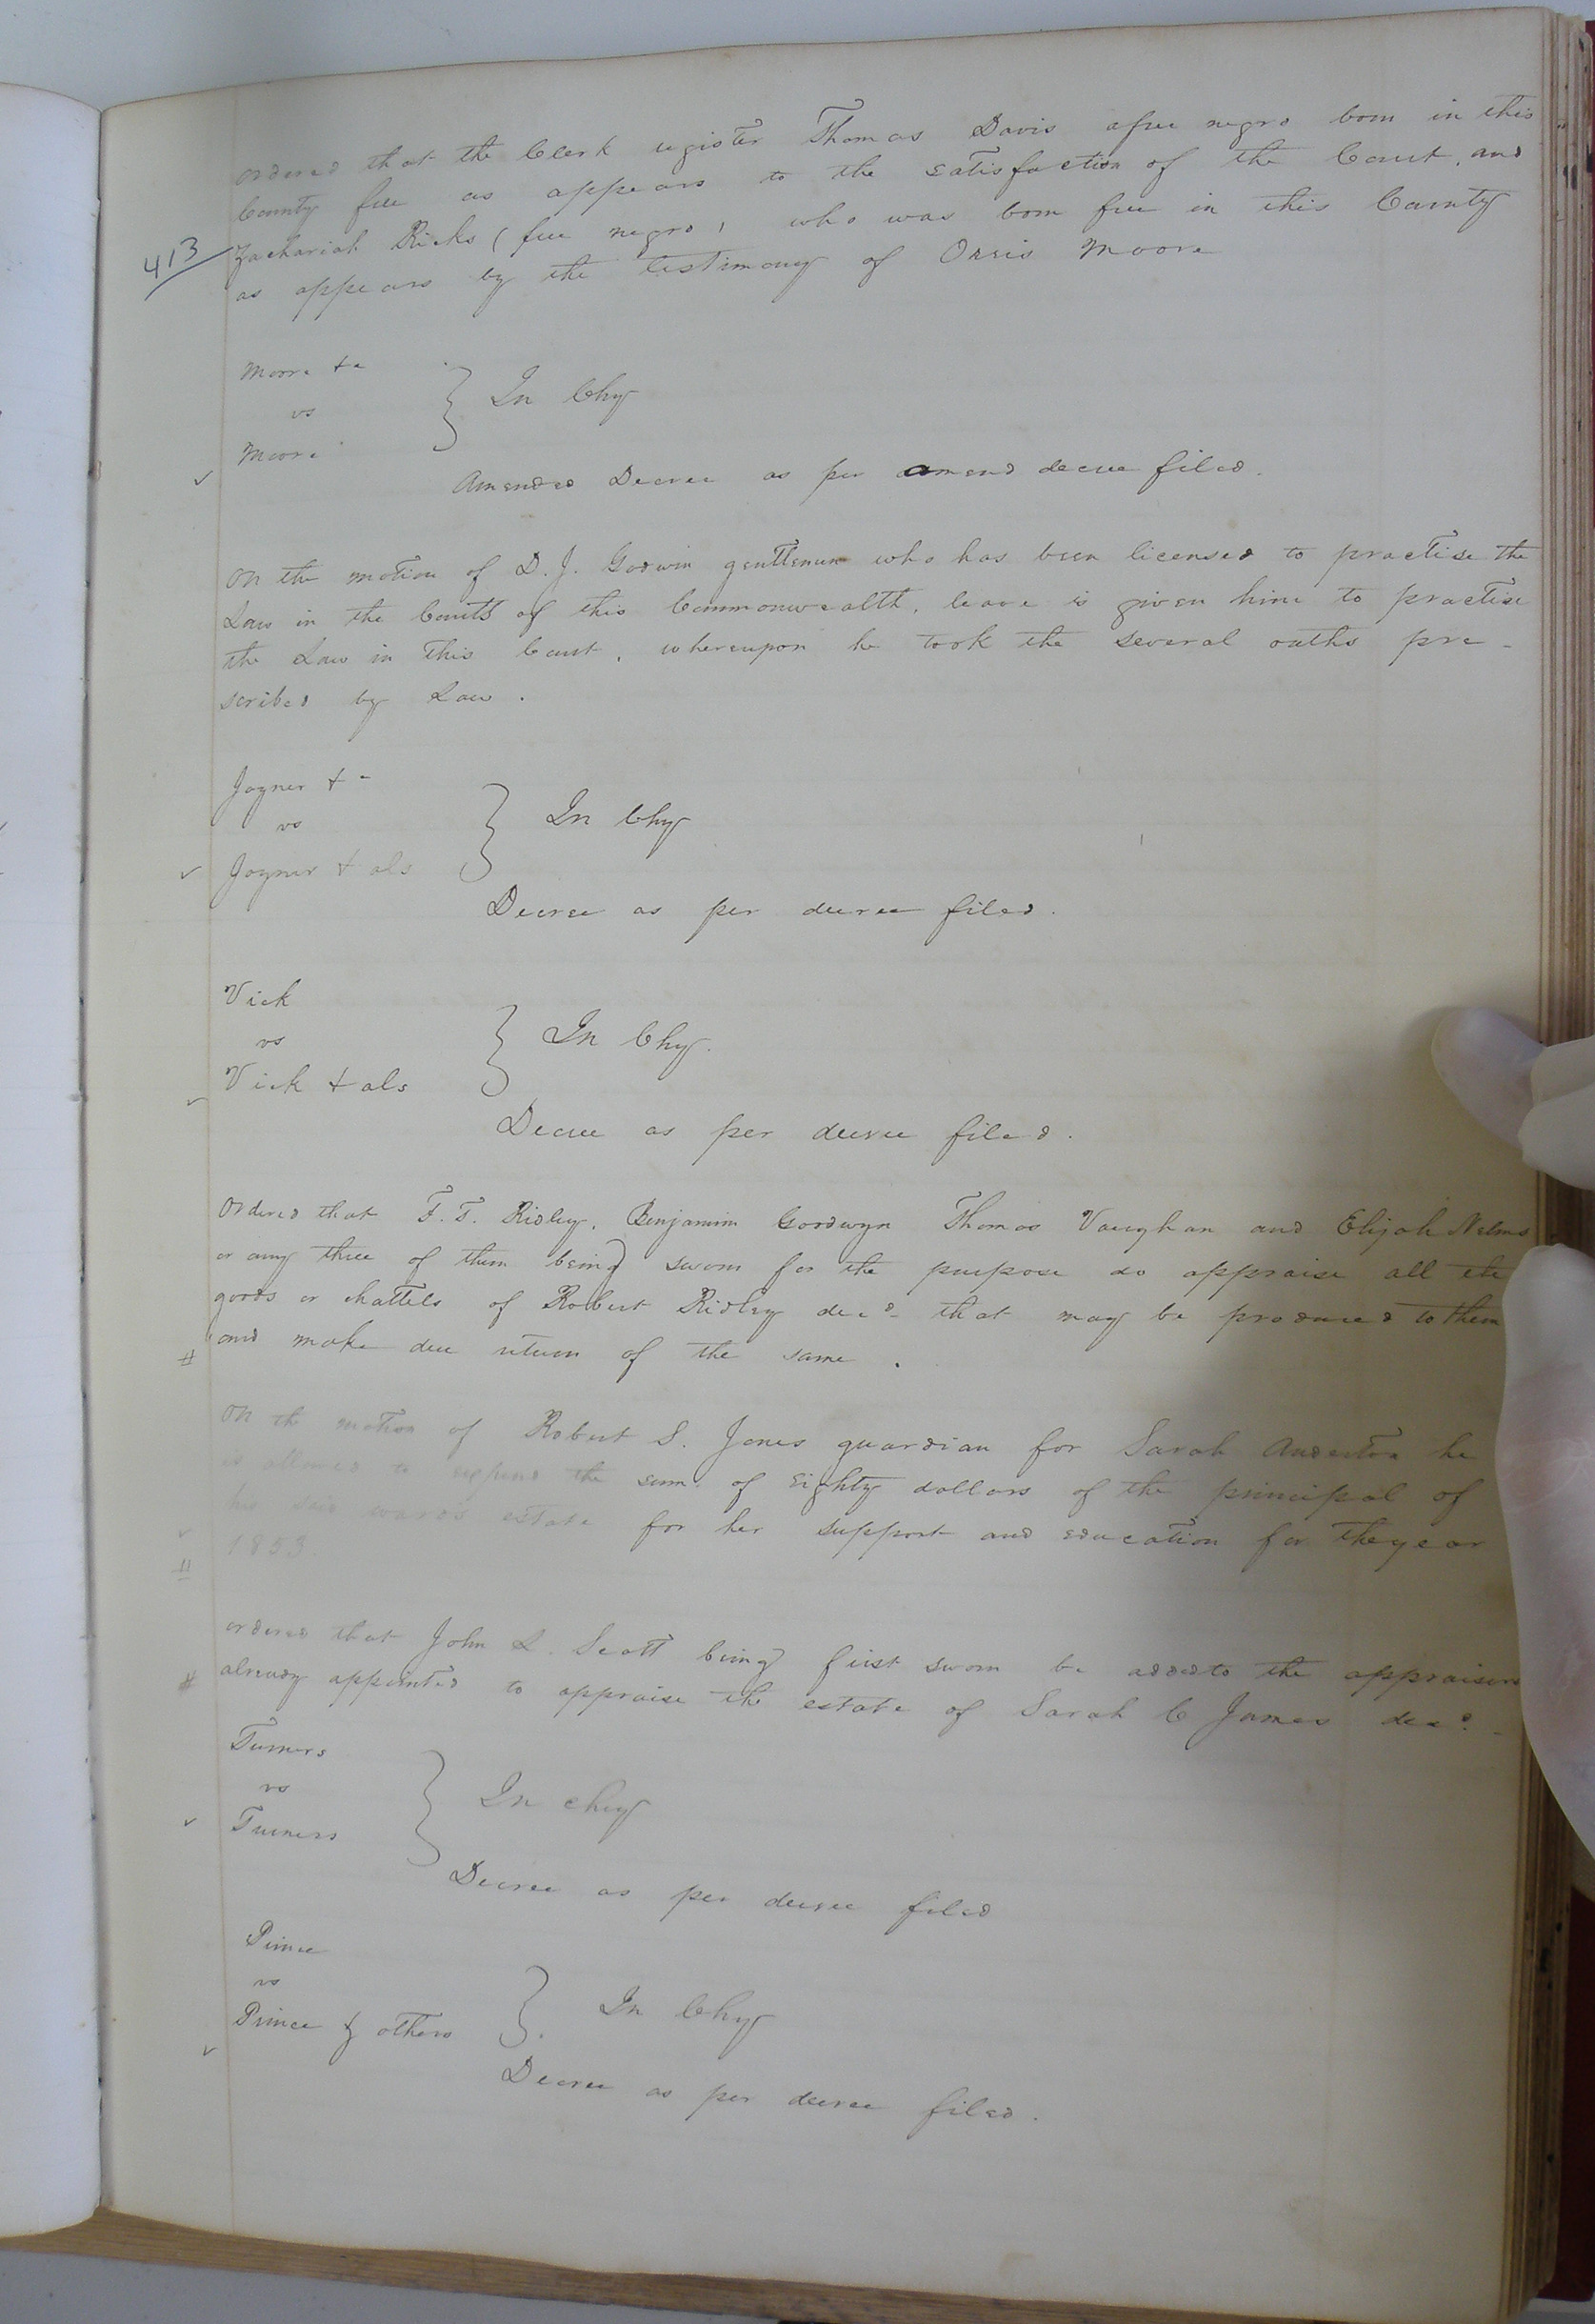 Ordered that the Clerk register Thomas Davis a free negro born in this
County free as appears to the satisfaction of the Court, and
413 Zachariah Ricks (free negro) who was born free in this County
as appears by the testimony of Orris Moore
Moore &c
vs } In Chy
Moore
Amended Decree as per amend decree filed.
On the motion of D. J. Godwin gentleman who has been licensed to practise the
Law in the Courts of this Commonwealth, leave is given him to practise
the Law in this Court, whereupon he took the several oaths pre-
scribed by Law.
Joyner &c
vs } In Chy
Joyner & als
Decree as per decree filed.
Vick
vs } In Chy.
Vick & als
Decree as per decree filed.
Ordered that F. T. Ridley, Benjamin Goodwyn Thomas Vaughan and Elijah Nelms
or any three of them being sworn for the purpose do appraise all the
goods or chattels of Robert Ridley decd. that may be produced to them
# and make due return of the same.
On the motion of Robert S. Jones guardian for Sarah Anderton he
is allowed to expend the sum of Eighty dollars of the principal of
his said ward's estate for her support and education for the year
# 1853.
ordered that John L. Scott being first sworn be added to the appraisers
# already appointed to appraise the estate of Sarah C James decd.
Turners
vs } In chy
Turners
Decree as per decree filed
Prince
vs } In Chy
Prince & others
Decree as per decree filed.